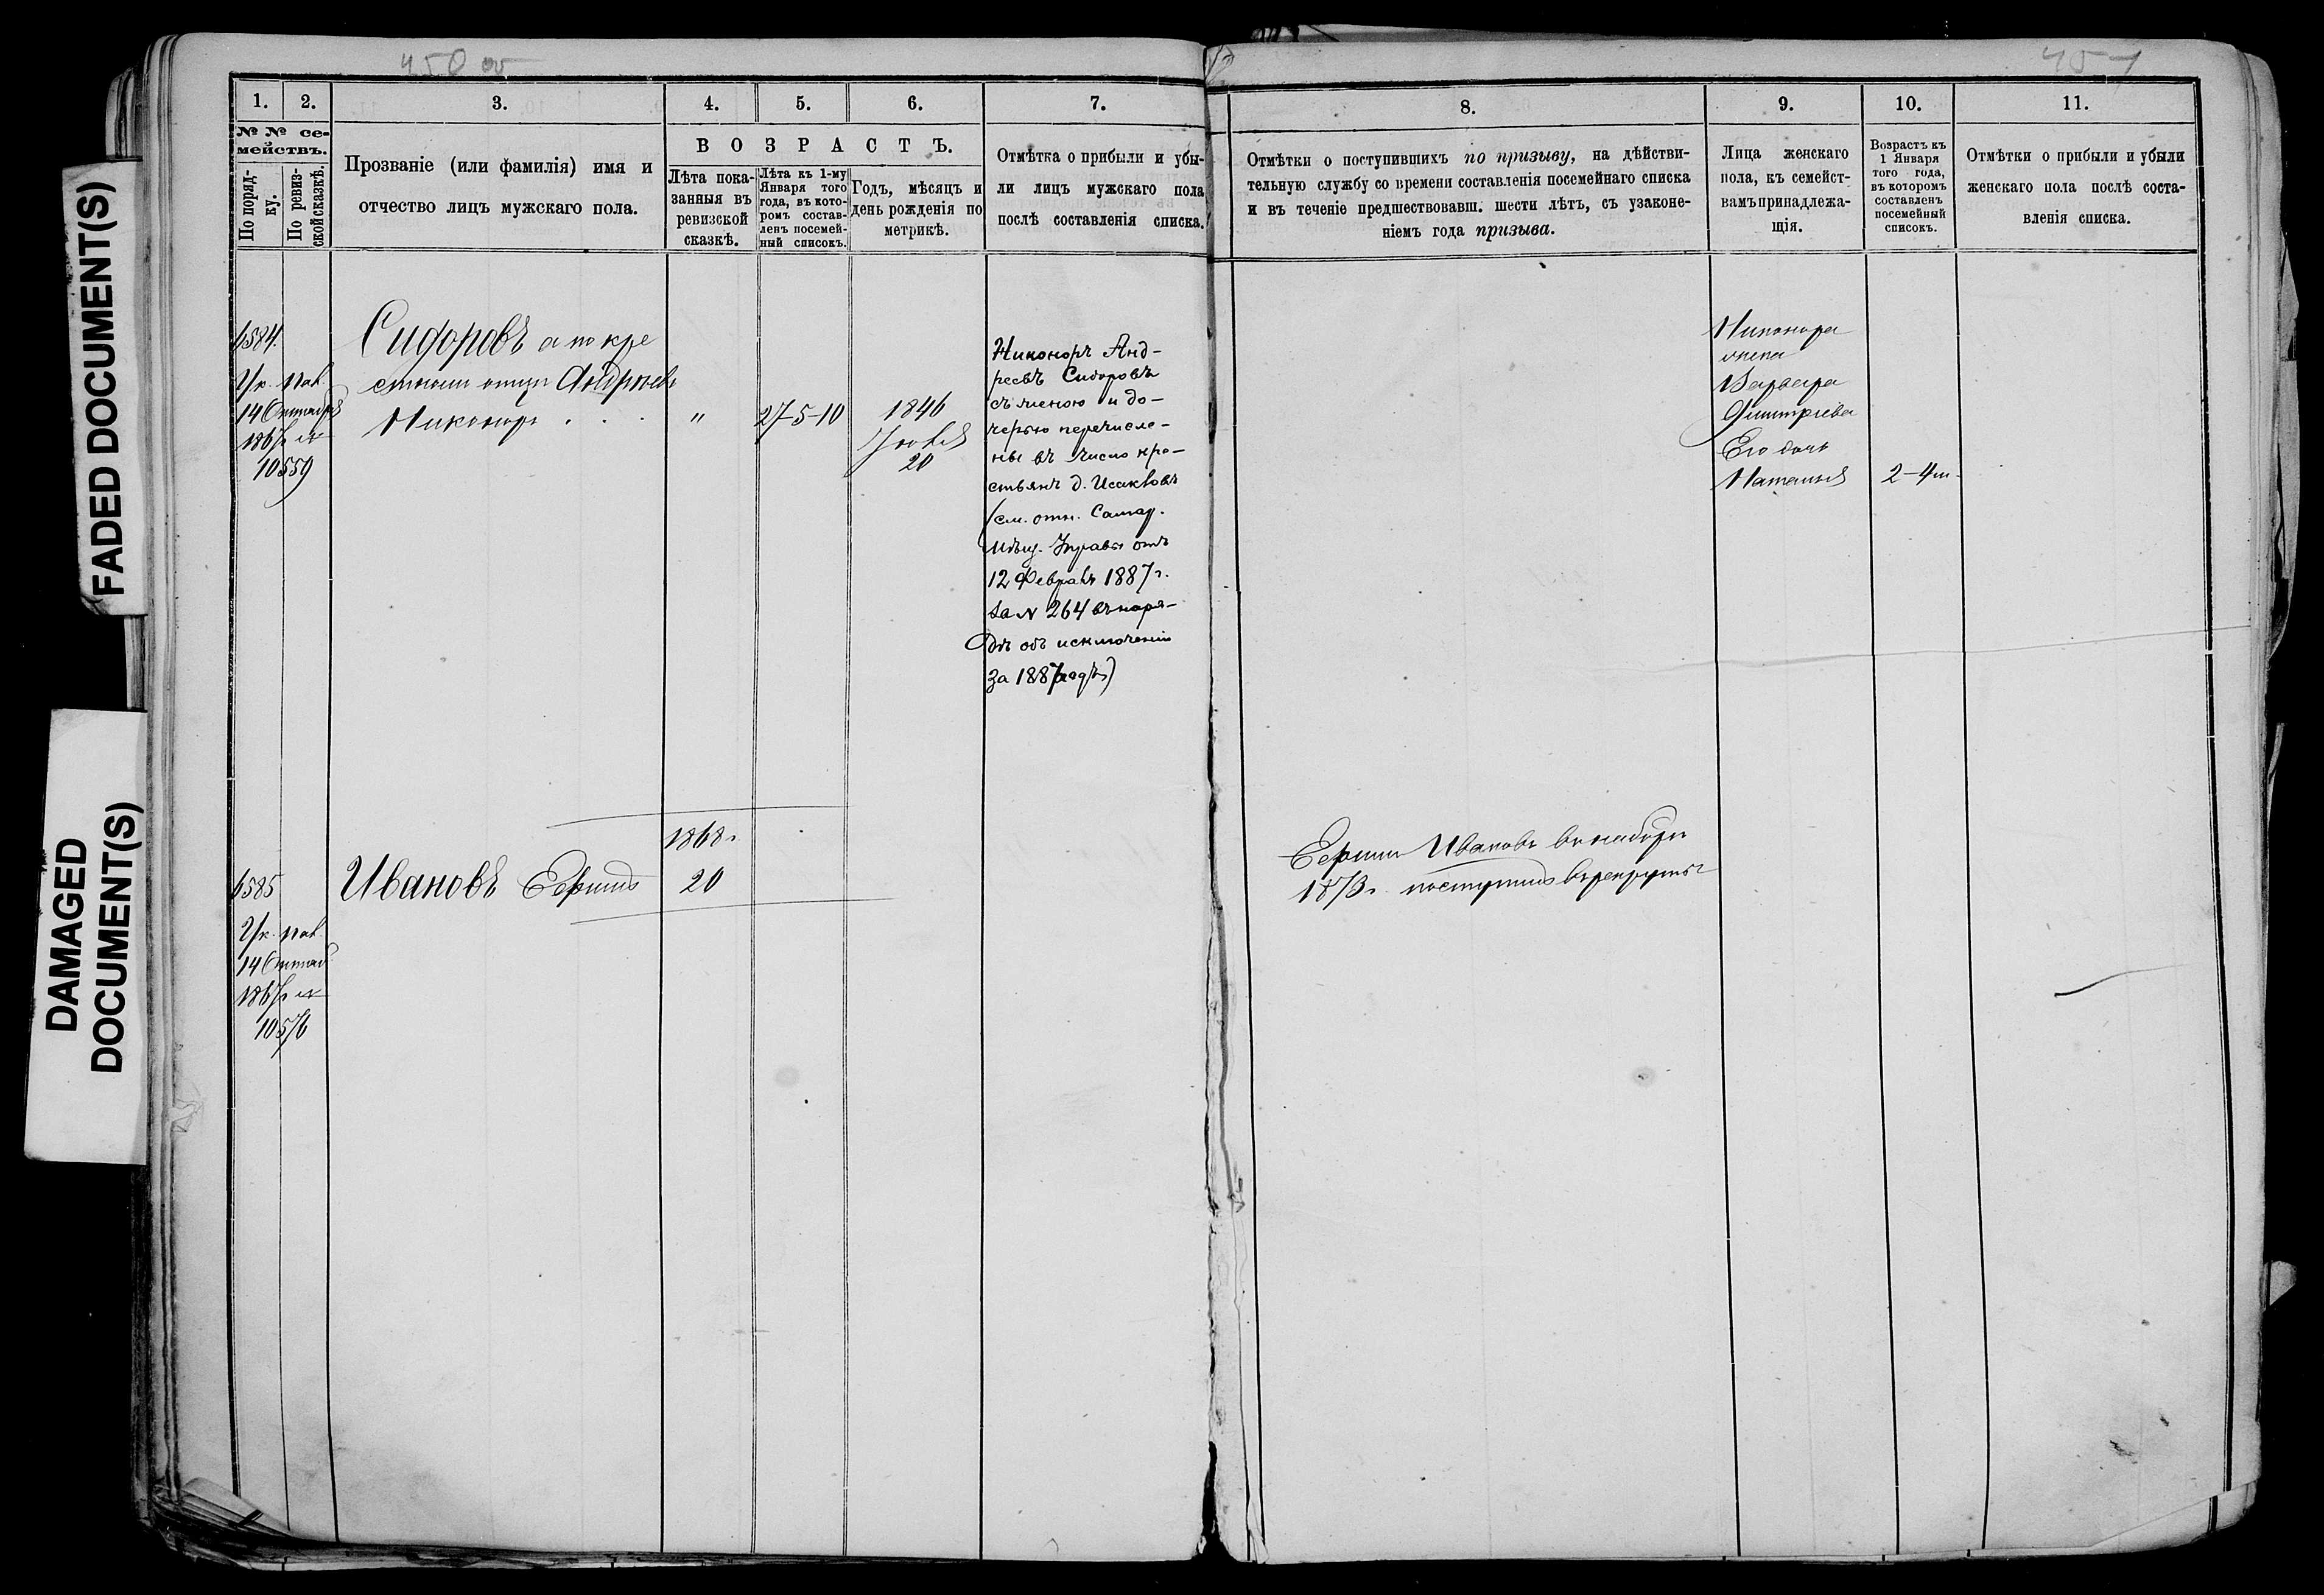 FADED DOCUMENT(S)
DAMAGED
DOCUMENT(S)
450 об
451
1.
2.
3.
4.
5.
6.
7.
№ № се-
мействъ.
По поряд-
ку.
По ревиз-
ской сказкѣ.
Прозваніе (или фамилія) имя и
отчество лицъ мужскаго пола.
ВОЗРАСТЪ.
Лѣта пока-
занныя въ
ревизской
сказкѣ.
Лѣта къ 1-му
Января того
года, въ кото-
ромъ состав-
ленъ посемей-
ный списокъ.
Годъ, мѣсяцъ и
день рожденія по
метрикѣ.
Отмѣтка о прибыли и убы-
ли лицъ мужскаго пола
послѣ составленія списка.
6584.
Ук. Пал.
14 Октября
1867 г. №
10559
Сидоровъ а по кре
стном отцу Андреевъ
Никоноръ
"
27-5-10
1846
Іюля
20
Никоноръ Анд-
реевъ Сидоровъ
съ женою и до-
черью перечисле-
ны въ число кре-
стьянъ д. Исаковъ
(см. отн. Самар.
Мѣщ. Управы отъ
12 Февраля 1887 г.
за № 264 въ наря-
дѣ объ исключеніи
за 1887 годъ)
6585
Ук. Пал.
14 Октяб.
1867 г. №
10576
Ивановъ
1868 г.
20
8.
9.
10.
11.
Отмѣтки о поступившихъ по призыву, на дѣйстви-
тельную службу со времени составленія посемейнаго списка
и въ теченіе предшествовавш. шести лѣтъ, съ узаконе-
ніемъ года призыва.
Лица женскаго
пола, къ семейст-
вамъ принадлежа-
щія.
Возрастъ къ
1 Января
того года,
въ которомъ
составленъ
посемейный
списокъ.
Отмѣтки о прибыли и убыли
женскаго пола послѣ соста-
вленія списка.
Никонора
жена
Варвара
Дмитріева
Его дочь
Наталья
2-4 м.
Ивановъ въ наборъ
1873 г. поступилъ въ рекруты